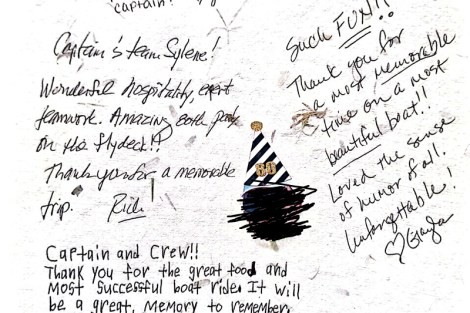 "captain!
Captain's team Sylene!
Wonderful hospitality, expert
teamwork. Amazing 60th party
on the flydeck!!
Thank you for a memorable
trip. Rick
Captain and Crew!!
Thank you for the great food and
most successful boat ride. It will
be a great, memory to remember.
60
Such FUN!!
Thank you for
a most memorable
time on a most
beautiful boat!!
Loved the sense
of humor of all.
Unforgettable!